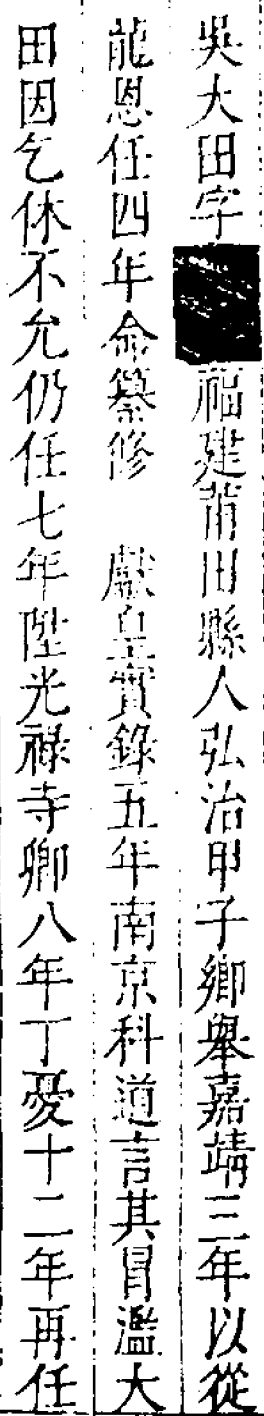 吳大田字■■福建莆田縣人弘治甲子鄉舉嘉靖三年以從
龍恩任四年命纂修　獻皇實錄五年南京科道言其冒濫大
田因乞休不允仍任七年陞光祿寺卿八年丁憂十二年再任